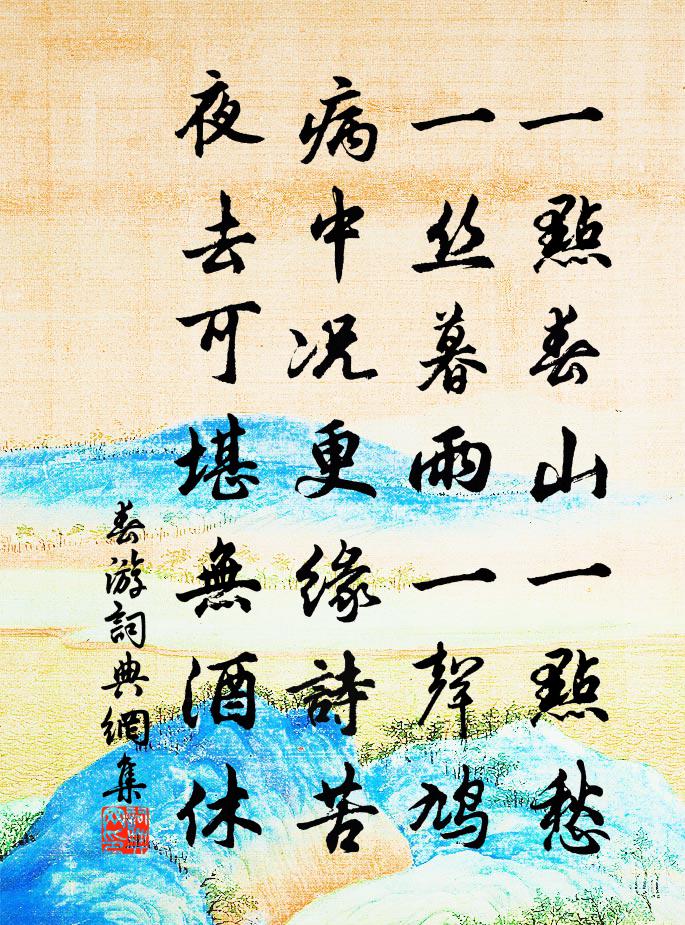 一點春山一點愁
一丝暮雨一聲鳩
病中况更緣詩苦
夜去可堪無酒休
春游詞典網集